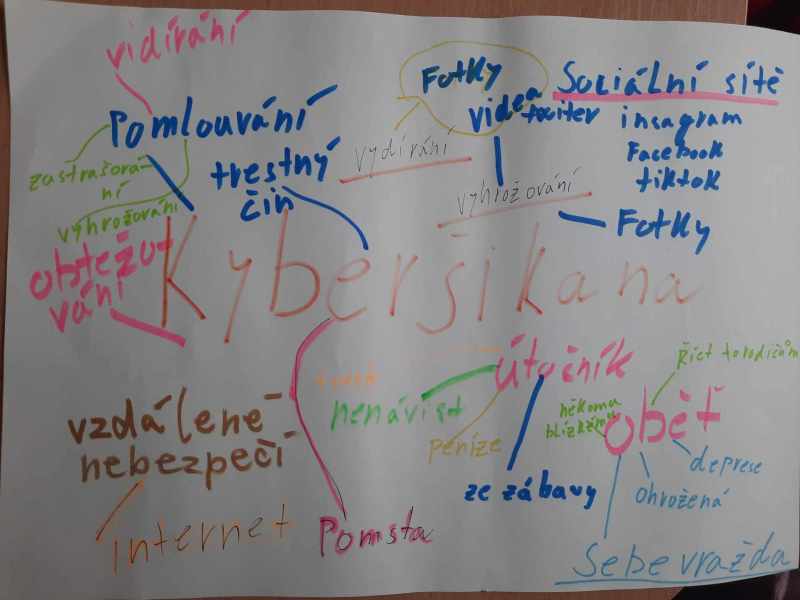 vidírání
Pomlouvání
zastrašová-
ní
vyhrožování
trestný
čin
obtěžo-
vání
Fotky
videa
vydírání
vyhrožování
Sociální sítě
twiter
insagram
Facebook
tiktok
Fotky
Kyberšikana
vzdálené
nebezpečí
internet
Pomsta
útočník
nenávist
peníze
ze zábavy
oběť
říct to rodičům
někoma
blízkému
deprese
ohrožená
Sebevražda